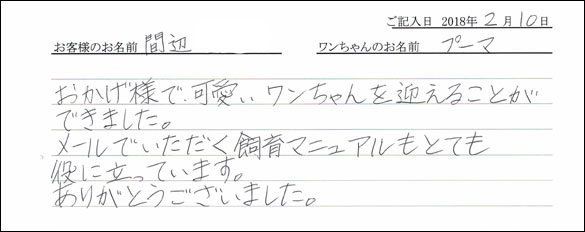 ご記入日 2018年 2月10日
お客様のお名前 間辺 ワンちゃんのお名前 プーマ
おかげ様で、可愛い ワンちゃんを迎えることが
できました。
メールでいただく飼育マニュアルもとても
役に立っています。
ありがとうございました。